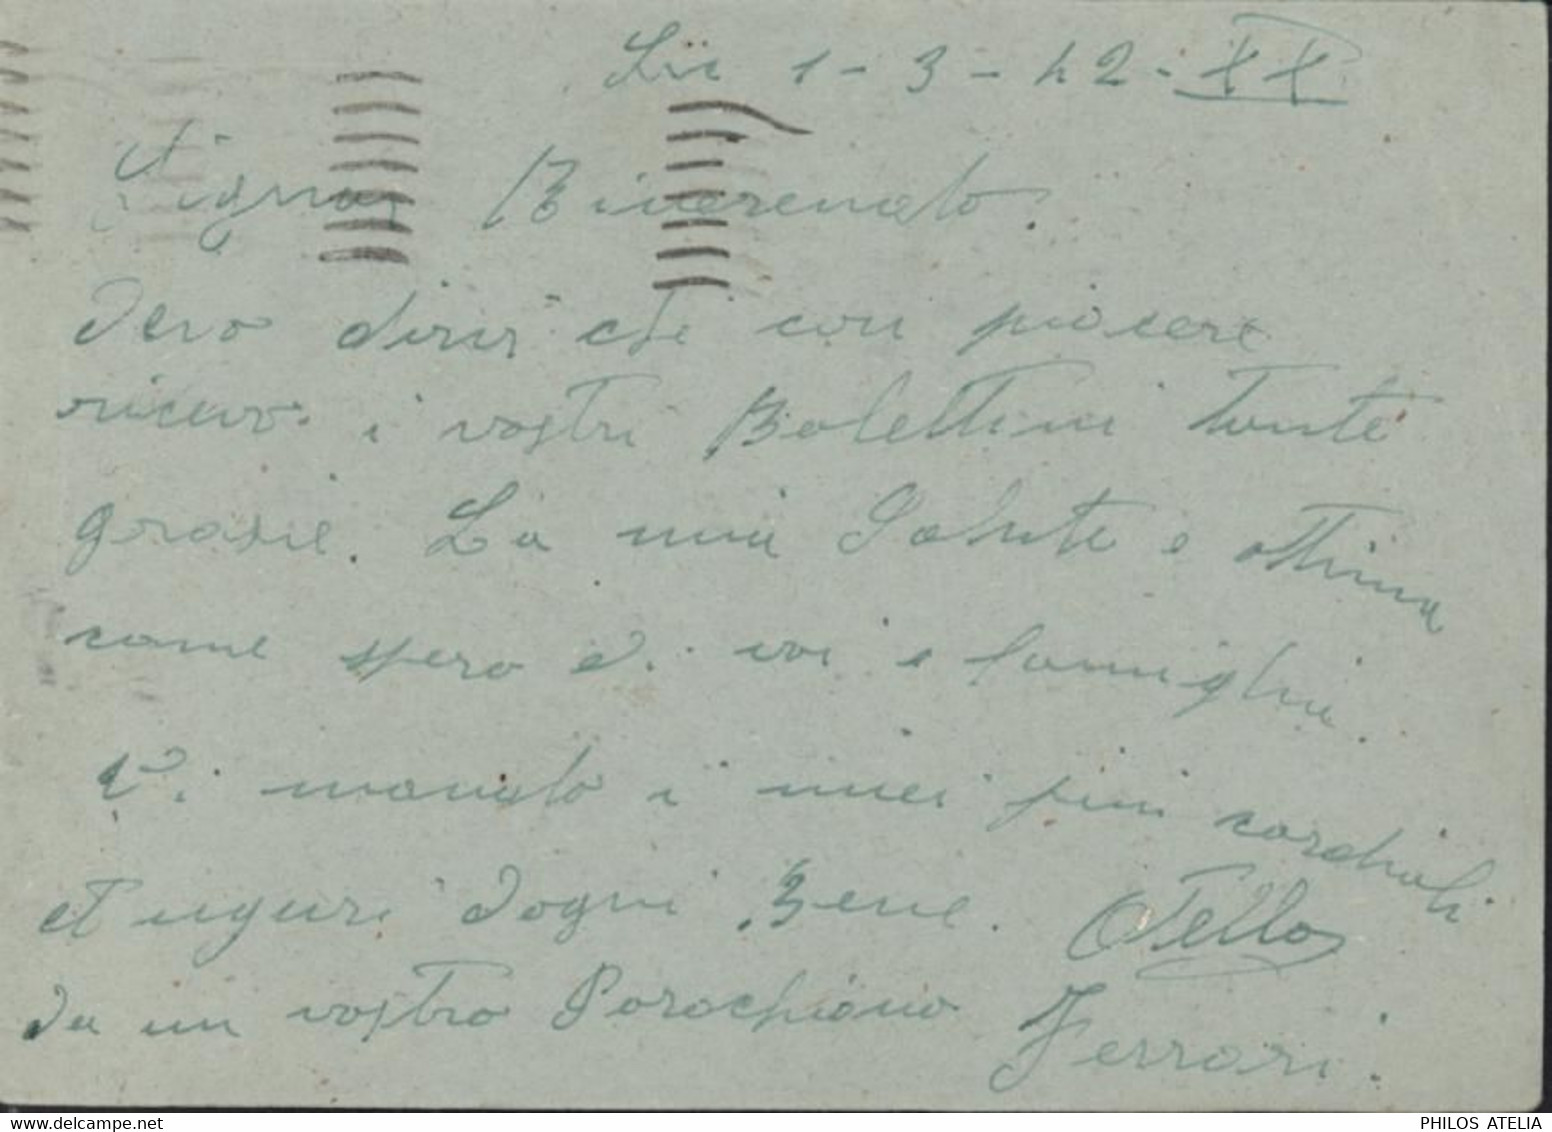 Lii 1-3-42-XX
Signor Riverendo.
Devo dirvi che con piacere
ricevo i vostri Bolettini tante
grazie. La mia Salute e ottima
come spero d. voi e famiglia.
Vi mando i miei piu cordiali
Auguri dogni Bene. Otello
da un vostro Parochiano Ferrari.
www.delcampe.net
PHILOS ATELIA